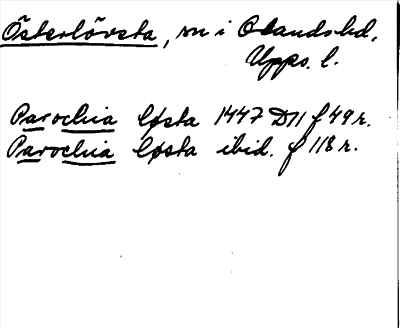 Österlövsta, sn i Olandshd,
Upps. l.
Parochia Løsta 1447 D11 f 49 r.
Parochia Løsta ibid. f 118 r.